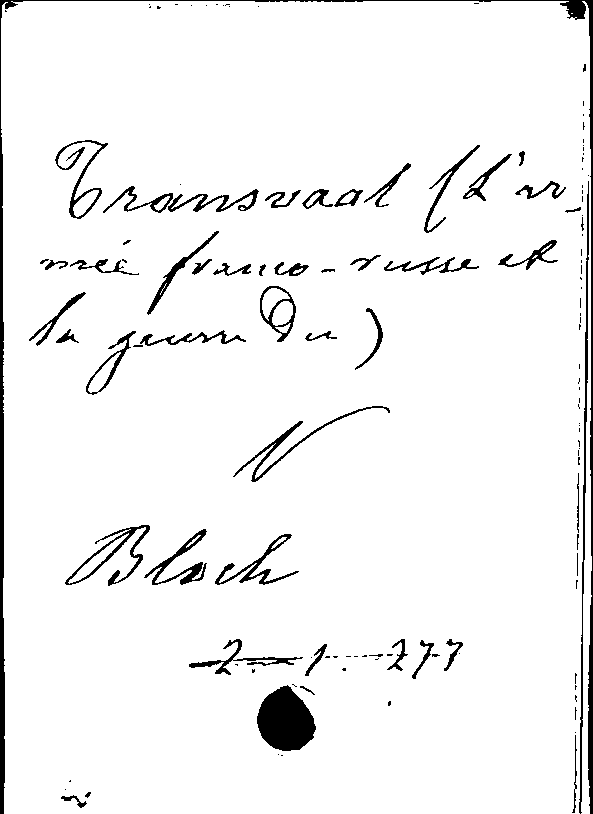 Transvaal (L'ar-
mée franco-russe et
la guerre du)
V
Bloch
2-1-277